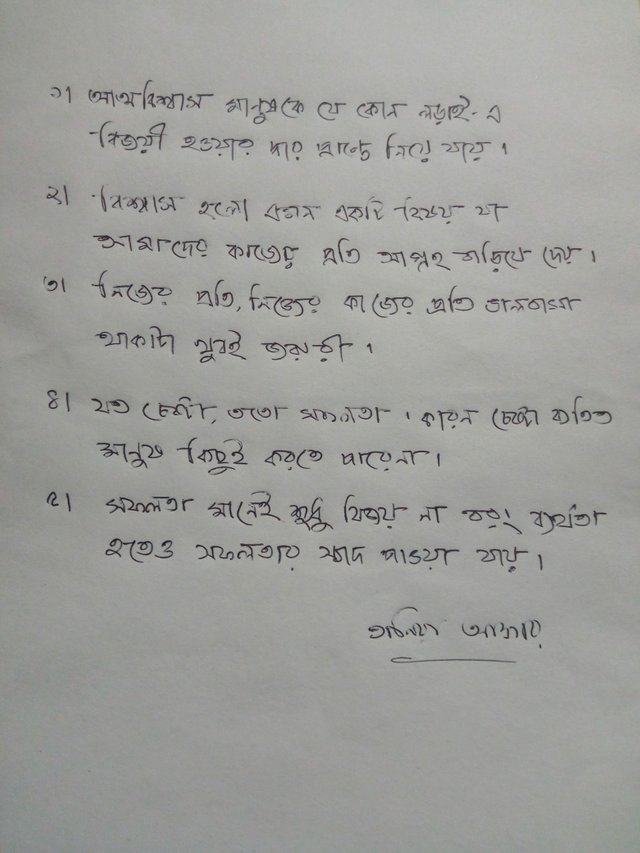 ১। আত্মবিশ্বাস মানুষকে যে কোন লড়াই-এ
বিজয়ী হওয়ার দ্বার প্রান্তে নিয়ে যায়।
২। বিশ্বাস হলো এমন একটি বিষয় যা
আমাদের কাজের প্রতি আগ্রহ বাড়িয়ে দেয়।
৩। নিজের প্রতি, নিজের কাজের প্রতি ভালবাসা
থাকাটা খুবই জরুরী।
৪। যত চেষ্টা, ততো সফলতা। কারন চেষ্টা ব্যতিত
মানুষ কিছুই করতে পারেনা।
৫। সফলতা মানেই শুধু বিজয় না বরং ব্যর্থতা
হতেও সফলতার স্বাদ পাওয়া যায়।
তানিয়া আক্তার